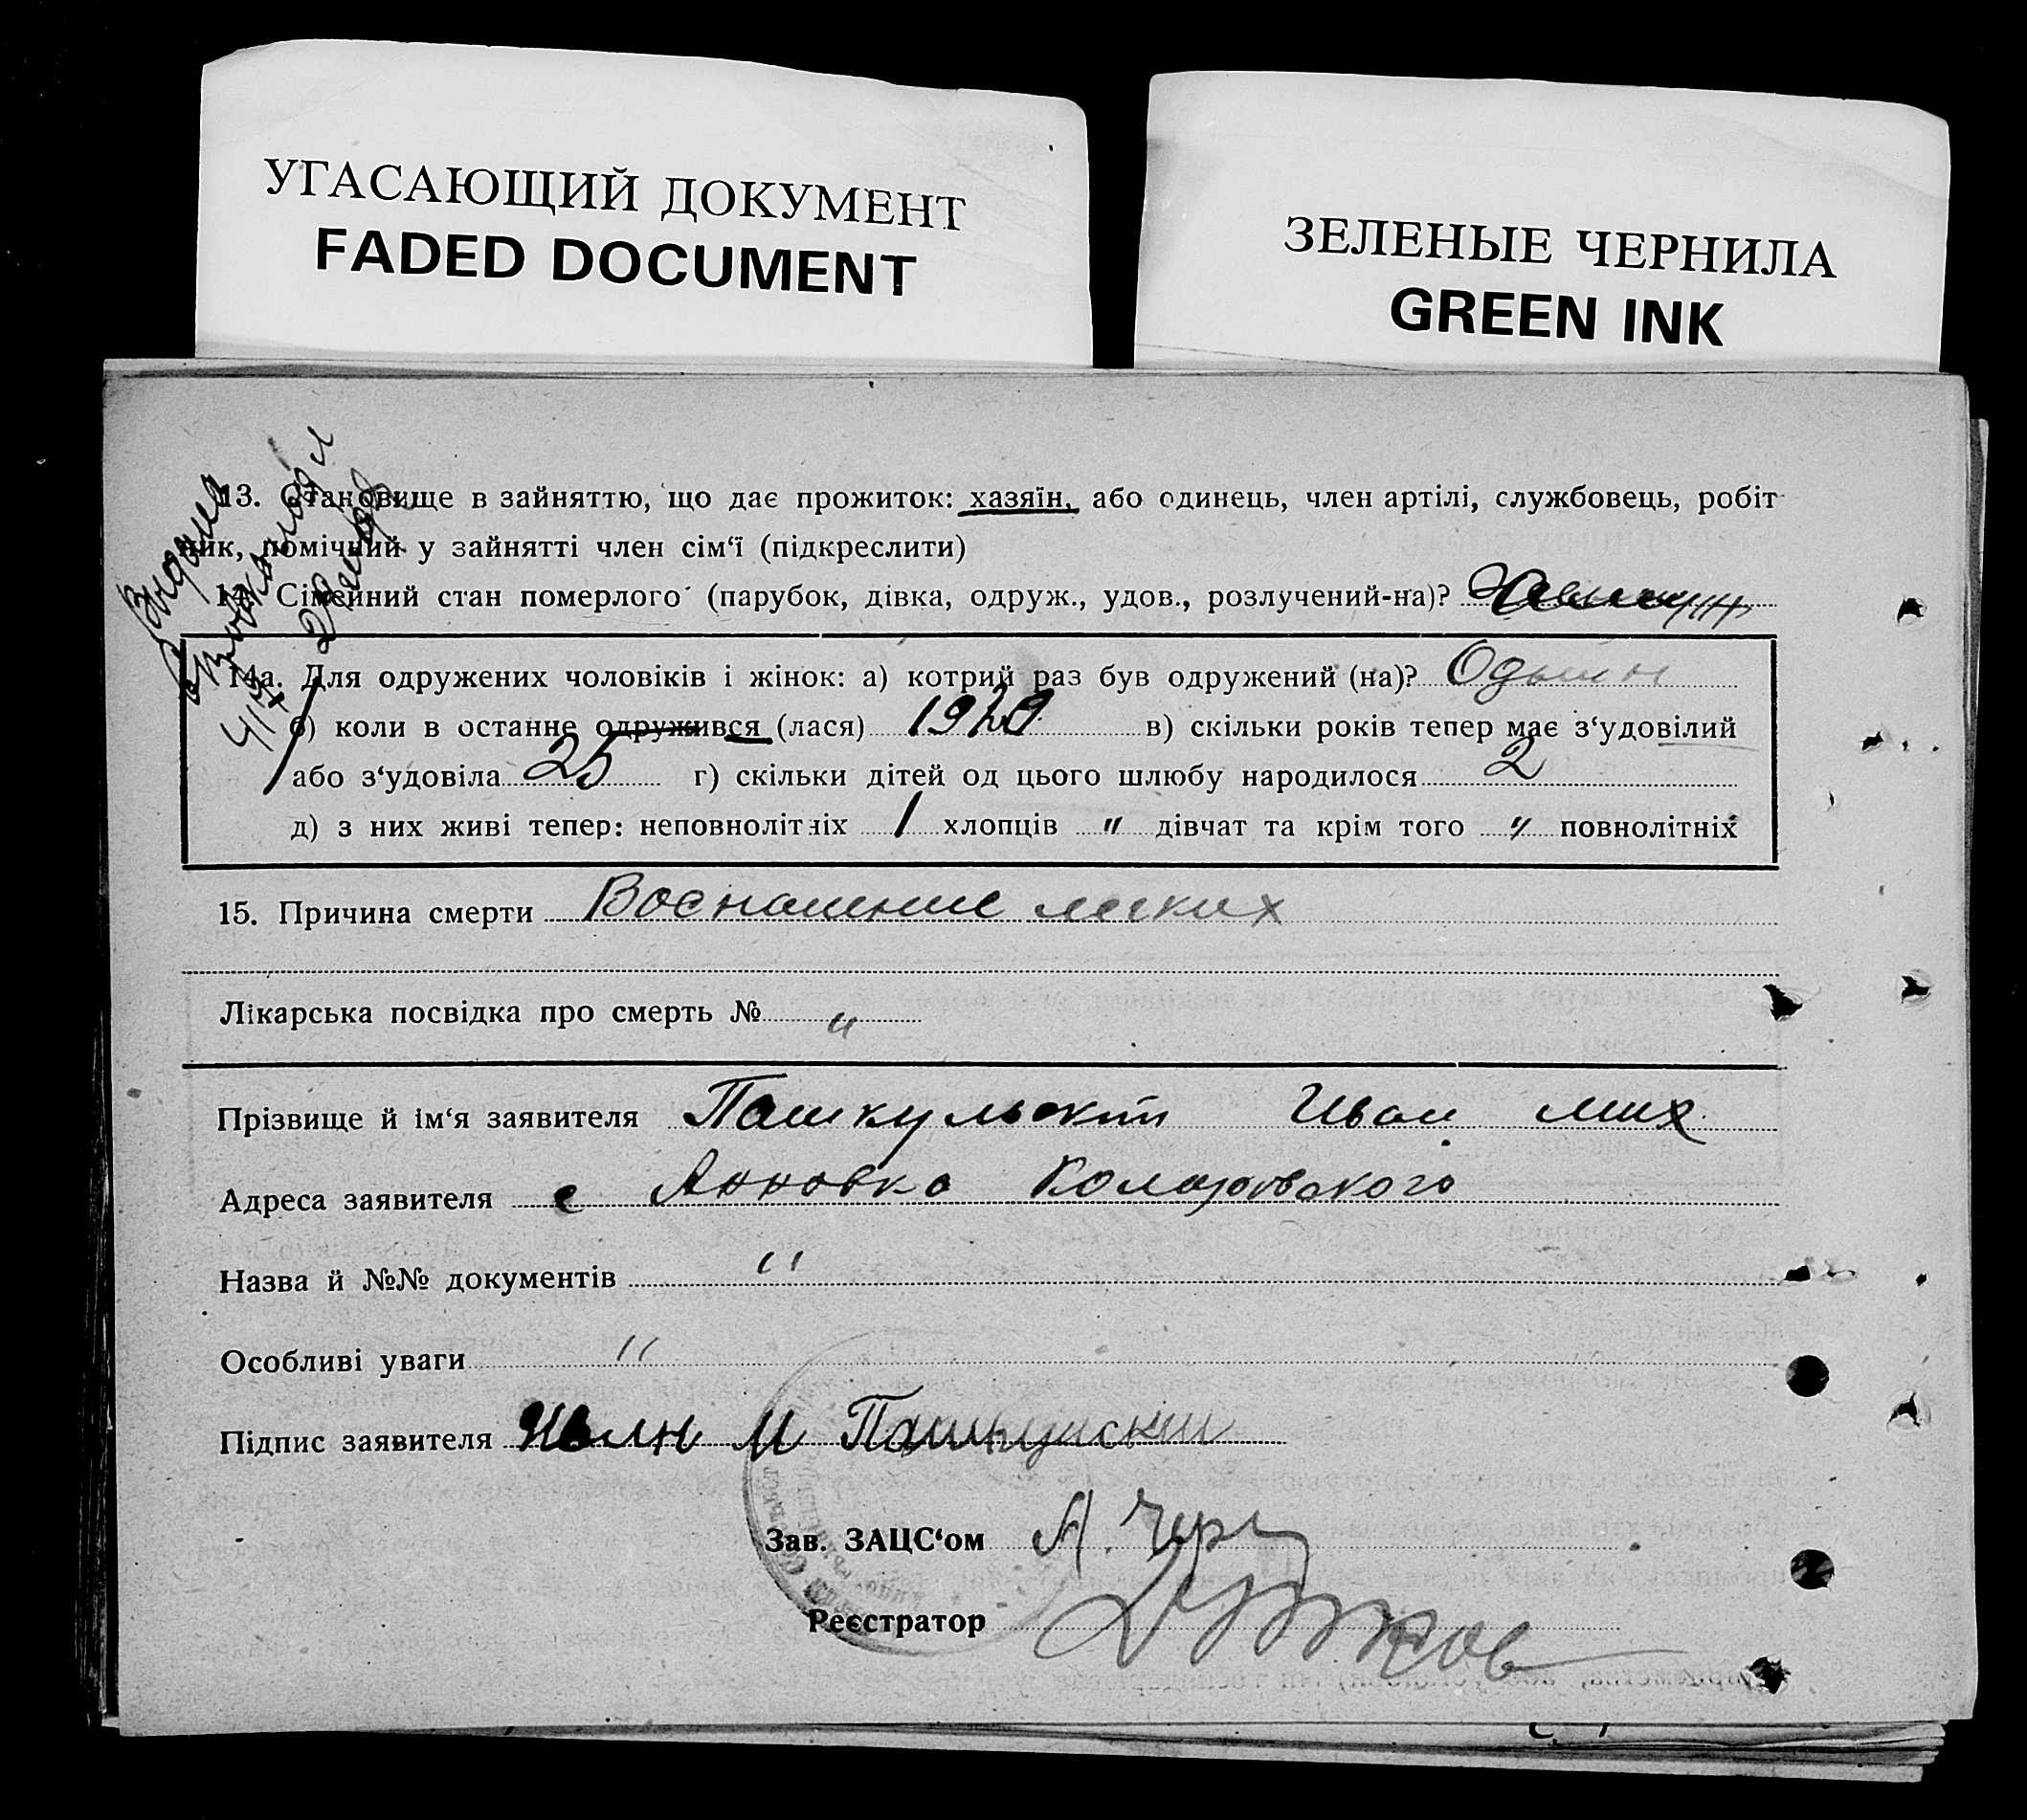 УГАСАЮЩИЙ ДОКУМЕНТ
FADED DOCUMENT
ЗЕЛЕНЫЕ ЧЕРНИЛА
GREEN INK
13. Становище в зайняттю, що дає прожиток: хазяїн, або одинець, член артілі, службовець, робіт-
ник, помічний у зайнятті член сім‘ї (підкреслити)
14. Сімейний стан померлого (парубок, дівка, одруж., удов., розлучений-на)?
14а. Для одружених чоловіків і жінок: а) котрий раз був одружений (на)? Одын
б) коли в останнє одружився (лася) 1929 в) скільки років тепер має з‘удовілий
або з‘удовіла 25 г) скільки дітей од цього шлюбу народилося 2
д) з них живі тепер: неповнолітніх 1 хлопців " дівчат та крім того " повнолітніх
15. Причина смерти Воспаление легких
Лікарська посвідка про смерть № "
Прізвище й ім‘я заявителя Пашкульский Иван Мих
Адреса заявителя с Анновка Коларовского
Назва й №№ документів "
Особливі уваги "
Підпис заявителя Иван М
Зав. ЗАЦС‘ом А.
Реєстратор